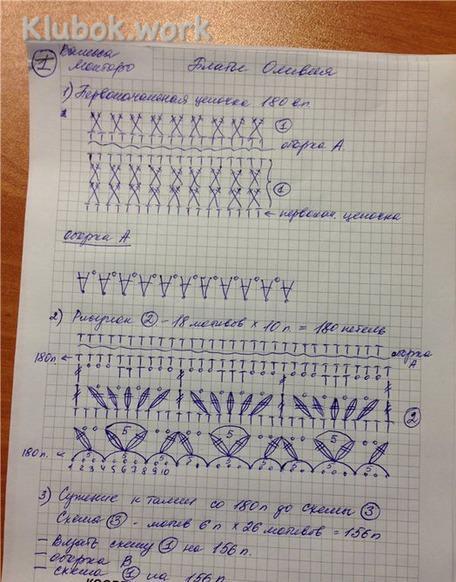 Klubok.work
① Ванесса
Монторо
Платье Оливия
1) Первоначальная цепочка 180 вп.
①
оборка А
①
← первонач. цепочка
оборка А
2) Рисунок ② - 18 мотивов × 10 п = 180 петель
оборка
А
180п ←
②
5 5 5
180п. ←
5 5 5 5 5
1 2 3 4 5 6 7 8 9 10
3) Сужение к талии со 180п до схемы ③
Схема ③ - мотив 6 п × 26 мотивов = 156п
- Вязать схему ① на 156 п.
- оборка В
- схема ① на 156 п